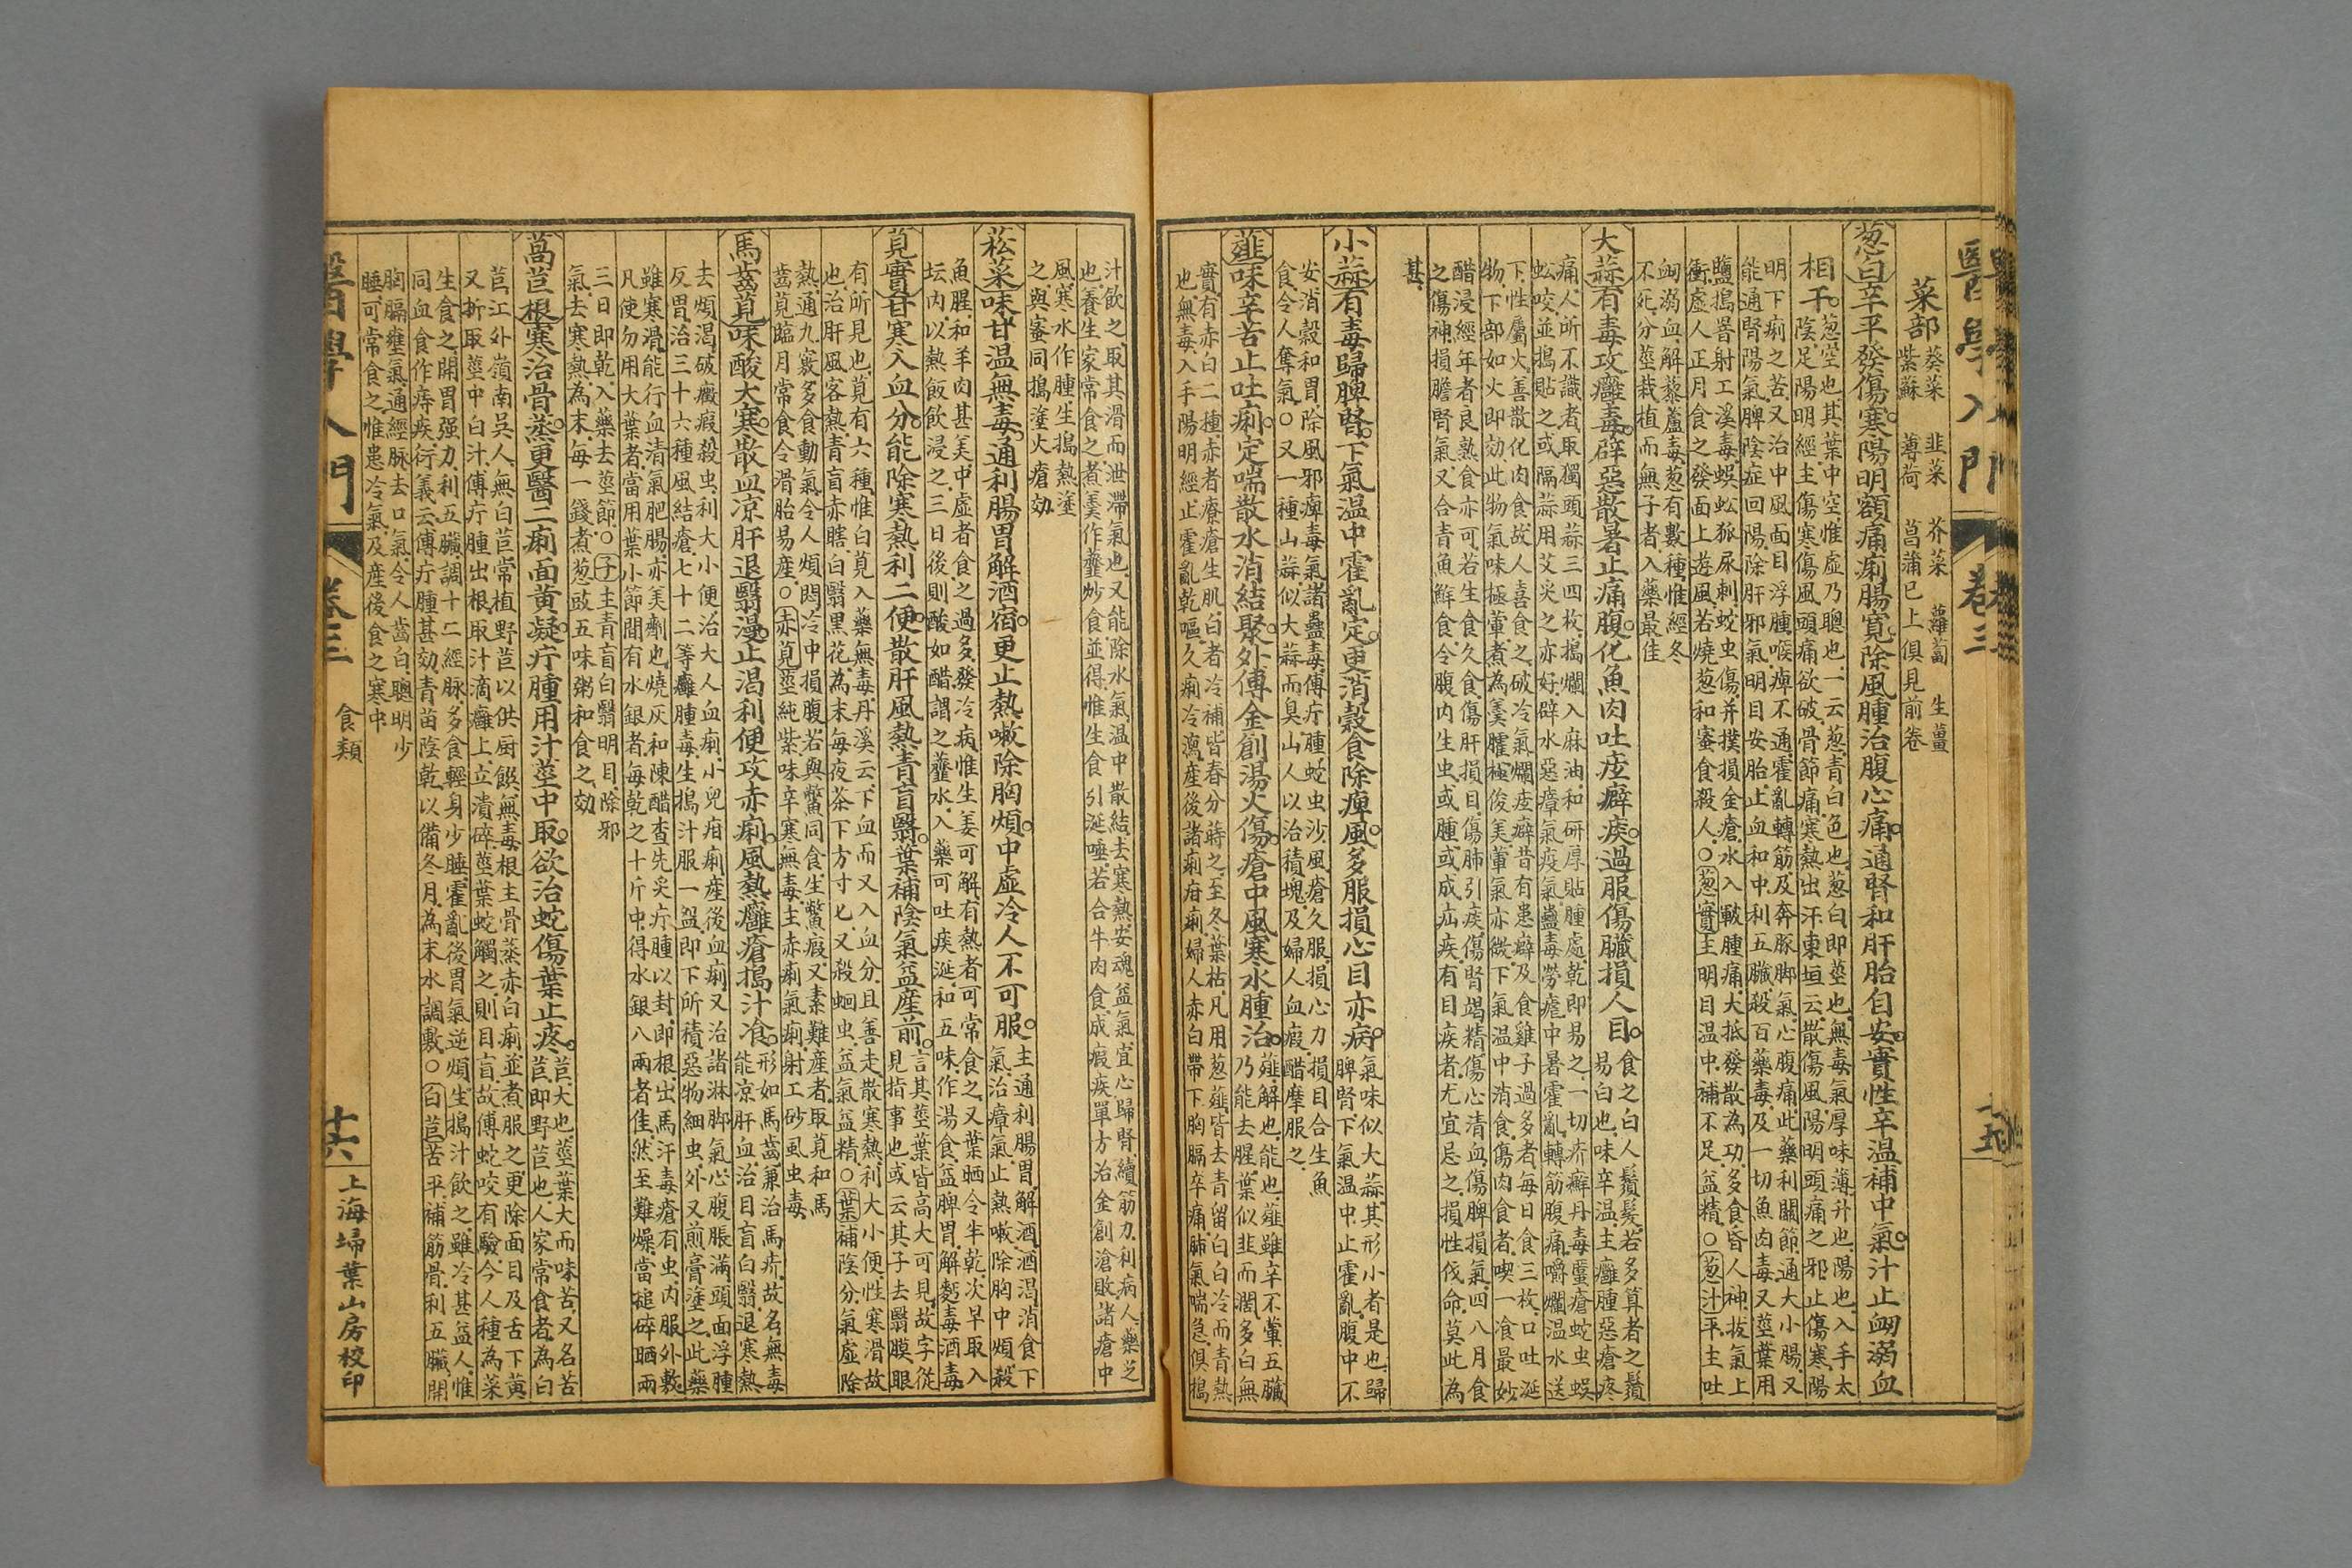 醫學入門
卷三
十五
菜部
葵菜　韭菜　芥菜　蘿蔔　生薑
紫蘇　薄荷　菖蒲巳上俱見前卷
葱白辛平發傷寒陽明額痛痢腸寬除風腫治腹心痛通腎和肝胎自安實性辛溫補中氣汁止衂溺血
相干
葱空也其葉中空惟虛乃聰也一云葱青白色也葱白即莖也無毒氣厚味薄升也陽也入手太
陰足陽明經主傷寒傷風頭痛欲破骨節痛寒熱出汗東垣云散傷風陽明頭痛之邪止傷寒陽
明下痢之苦又治中風面目浮腫喉痺不通霍亂轉筋及奔豚脚氣心腹痛此藥利關節通大小腸又
能通腎陽氣脾陰症回陽除肝邪氣明目安胎止血和中利五臟殺百藥毒及一切魚肉毒又莖葉用
鹽搗罯射工溪毒蜈蚣狐尿刺蛇虫傷并撲損金瘡水入皸腫痛大抵發散為功多食昏人神拔氣上
衝虛人正月食之發面上遊風若燒葱和蜜食殺人○葱實主明目溫中補不足益精○葱汁平主吐
衂溺血解藜蘆毒葱有數種惟經冬
不死分莖栽植而無子者入藥最佳
大蒜有毒攻癰毒辟惡散暑止痛腹化魚肉吐痃癖痰過服傷臟損人目
食之白人鬚髮若多算者之鬚
易白也味辛溫主癰腫惡瘡疼
痛人所不識者取獨頭蒜三四枚搗爛入麻油和研厚貼腫處乾即易之一切疥癬丹毒蠆瘡蛇虫蜈
蚣咬並搗貼之或隔蒜用艾灸之亦好辟水惡瘴氣疫氣蠱毒勞瘧中暑霍亂轉筋腹痛嚼爛溫水送
下性屬火善散化肉食故人喜食之破冷氣爛痃癖昔有患癖及食雞子過多者每日食三枚口吐涎
物下部如火即効此物氣味極葷煮為羹臛極俊美葷氣亦微下氣溫中消食傷肉食者喫一飡最妙
醋浸經年者良熟食亦可若生食久食傷肝損目傷肺引痰傷腎竭精傷心清血傷脾損氣四八月食
之傷神損膽腎氣又合青魚鮮食令腹內生虫或腫或成疝疾有目疾者尤宜忌之損性伐命莫此為
甚
小蒜有毒歸脾腎下氣溫中霍亂定更消穀食除痺風多服損心目亦病
氣味似大蒜其形小者是也歸
脾腎下氣溫中止霍亂腹中不
安消穀和胃除風邪痺毒氣諸蠱毒傅疔腫蛇虫沙風瘡久服損心力損目合生魚
食令人奪氣○又一種山蒜似大蒜而臭山人以治積塊及婦人血瘕醋摩服之
薤味辛苦止吐痢定喘散水消結聚外傅金創湯火傷瘡中風寒水腫治
薤解也能也薤雖辛不葷五臟
乃能去腥葉似韭而濶多白無
實有赤白二種赤者療瘡生肌白者冷補皆春分蒔之至冬葉枯凡用葱薤皆去青留白白冷而青熱
也無毒入手陽明經止霍亂乾嘔久痢冷瀉產後諸痢疳痢婦人赤白帶下胸膈卒痛肺氣喘急俱搗
汁飲之取其滑而泄滯氣也又能除水氣溫中散結去寒熱安魂益氣宜心歸腎續筋力利病人藥芝
也養生家常食之煮羹作虀炒食並得惟生食引涎唾若合牛肉食成瘕疾單方治金創滄敗諸瘡中
風寒水作腫生搗熱塗
之與蜜同搗塗火瘡効
菘菜味甘溫無毒通利腸胃解酒宿更止熱嗽除胸煩中虛冷人不可服
主通利腸胃解酒酒渴消食下
氣治瘴氣止熱嗽除胸中煩殺
魚腥和羊肉甚美中虛者食之過多發冷病惟生姜可解有熱者可常食之又葉晒令半乾次早取入
坛內以熱飯飲浸之三日後則酸如醋謂之虀水入藥可吐痰涎和五味作湯食益脾胃解麪毒酒毒
莧實甘寒入血分能除寒熱利二便散肝風熱青盲翳葉補陰氣益產前
言其莖葉皆高大可見故字從
見指事也或云其子去翳膜眼
有所見也莧有六種惟白莧入藥無毒丹溪云下血而又入血分且善走散寒熱利大小便性寒滑故
也治肝風客熱青盲赤瞎白翳黑花為末每夜茶下方寸匕又殺蛔虫益氣益精○葉補陰分氣虛除
熱通九竅多食動氣令人煩悶冷中損腹若與鱉同食生鱉瘕又素難產者取莧和馬
齒莧臨月常食令滑胎易產○赤莧莖純紫味辛寒無毒主赤痢氣痢射工砂虱虫毒
馬齒莧味酸大寒散血涼肝退翳漫止渴利便攻赤痢風熱癰瘡搗汁飡
形如馬齒兼治馬疥故名無毒
能涼肝血治目盲白翳退寒熱
去煩渴破癥瘕殺虫利大小便治大人血痢小兒疳痢產後血痢又治諸淋脚氣心腹脹滿頭面浮腫
反胃治三十六種風結瘡七十二等癰腫毒生搗汁服一盌即下所積惡物細虫外又煎膏塗之此藥
雖寒滑能行血清氣肥腸亦美劑也燒灰和陳醋查先灸疔腫以封即根出馬汗毒瘡有虫內服外敷
凡使勿用大葉者當用葉小節間有水銀者每乾之十斤中得水銀八兩者佳然至難燥當搥碎晒兩
三日即乾入藥去莖節○子主青盲白翳明目除邪
氣去寒熱為末每一錢煮葱豉五味粥和食之効
萵苣根寒治骨蒸更醫二痢面黃凝疔腫用汁莖中取欲治蛇傷葉止疼
苣大也莖葉大而味苦又名苦
苣即野苣也人家常食者為白
苣江外嶺南吳人無白苣常植野苣以供厨饌無毒根主骨蒸赤白痢並煮服之更除面目及舌下黃
又折取莖中白汁傅疔腫出根取汁滴癰上立潰碎莖葉蛇觸之則目盲故傅蛇咬有驗今人種為菜
生食之開胃强力利五臟調十二經脉多食輕身少睡霍亂後胃氣逆煩生搗汁飲之雖冷甚益人惟
同血食作痔疾衍義云傅疔腫甚効青苗陰乾以備冬月為末水調敷○白苣苦平補筋骨利五臟開
胸膈壅氣通經脉去口氣令人齒白聰明少
睡可常食之惟患冷氣及產後食之寒中
醫學入門
卷三
食類
十六
上海埽葉山房校印